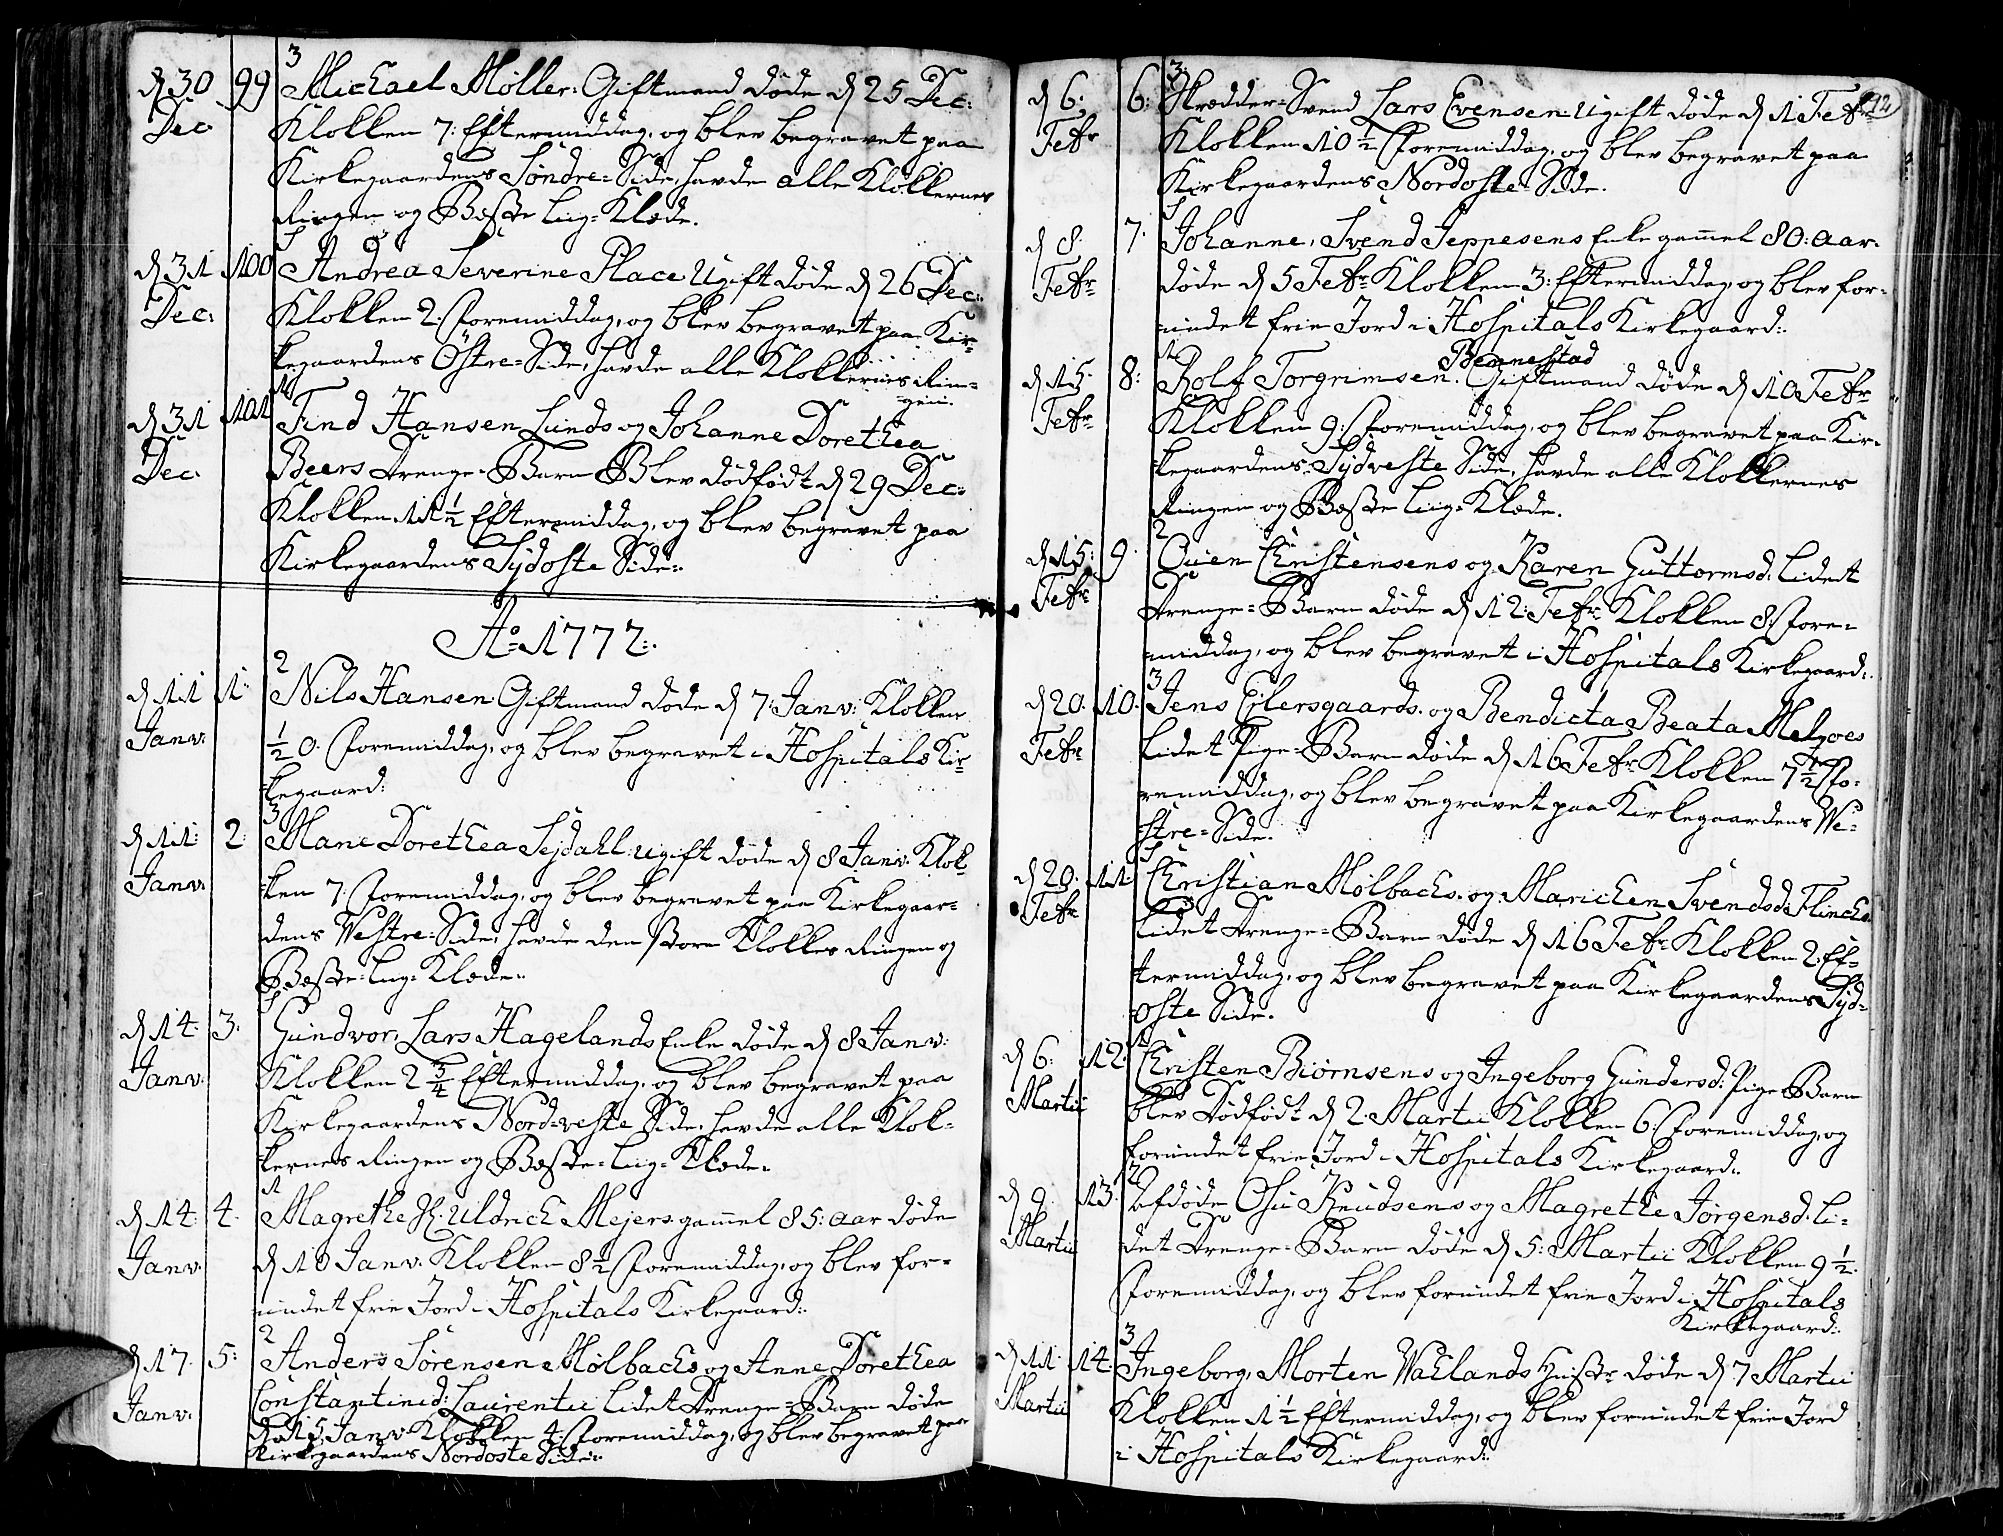 d 30 99 3
Michael Møller. Giftmand døde d 25 Dec:
Dec Klokken 7: Eftermiddag, og blev begravet paa
Kirkegaardens Søndre=Side, havde alle Klokkernes
Ringen og Beste Liig=Klæde.
d 31 100 Andrea Severine Place Ugift døde d 26 Dec:
Dec: Klokken 2. Foremiddag, og blev begravet paa Kir-
kegaardens Østre=Side, havde alle Klokkernes Rin=
gen.
d 31 101 Find Hansen Lunds og Johanne Dorethea
Dec Beers Drenge=Barn Blev dødfødt d 29 Dec:
Klokken 11 1/2 Eftermiddag, og blev begravet paa
Kirkegaardens Sydoste Side:
Ao 1772:
2
d 11 1. Nils Hansen Giftmand døde d 7 Janv: Klokken
Janv. 1/2 0. Foremiddag, og blev begravet i Hospitals Kir-
kegaard:
3
d 11: 2: Mane Dorethea Sejdahl ugift døde d 8 Janv. Klok
Janv. ken 7: Foremiddag, og blev begravet paa Kirkegaar=
dens Westre=Side, havde den store Klokkes Ringen og
Beste=Liig=Klæde.
d 14: 3. Gundvor, Lars Hagelands Enke døde d 8 Janv:
Janv. Klokken 2 3/4 Eftermiddag, og blev begravet paa
Kirkegaardens Nord=veste Side, havde alle Klok=
kernes Ringen og Beste=Liig=Klæde.
1
d 14: 4. Magrethe Sl. Uldrich Mejers gamel 85: aar døde
Janv. d 10 Janv. Klokken 8 1/2 Foremiddag, og blev for=
undet frie Jord i Hospitals Kirkegaard:
2
d 17. 5: Anders Sørensen Mølbachs og Anne Dorethea
Janv. Constantinid: Laurentii Lidet Drenge=Barn døde
d 15 Janv Klokken 4: Foremiddag, og blev begravet paa
Kirkegaardens Nordoste Side:
12
3.
d 6: 6: Skrædder=Svend Lars Evensen Ugift døde d 1 Febr
Febr Klokken 10 1/2 Foremiddag, og blev begravet paa
Kirkegaardens Nordoste=Side.
d 8. 7. Johanne, Svend Jeppesens Enke gamel 80: aar.
Febr døde d 5 Febr Klokken 3: Eftermiddag, og blev for-
undet frie Jord i Hospitals Kirkegaard:
1 Bennestad
d 15. 8: Rolf Torgrimsen. Giftmand døde d 10 Febr
Febr Klokken 9: Foremiddag, og blev begravet paa Kir-
kegaardens: Sydveste Side, havde alle Klokkernes
Ringen og Beste Liig=Klæde.
2
d 15: 9. Ouien Christensens og Karen Guttormsd. Lidet
Febr Drenge=Barn døde d 12: Febr Klokken 8: Fore-
middag, og blev begravet i Hospitals Kirkegaard:
3
d 20. 10. Jens Eilersgaards. og Bendicta Beata Melzoes
Febr Lidet Pige=Barn døde d 16 Febr Klokken 7 1/2 Fo-
remiddag, og blev begravet paa Kirkegaardens We-
stre=Side.
d 20. 11 Christian Mølbachs. og Marichen Svendsd. Flinchs
Febr Lidet Drenge=Barn døde d 16 Febr Klokken 2. Ef-
termiddag, og blev begravet paa Kirkegaardens Syd-
oste Side.
1
d 6: 12. Christen Biørnsens og Ingeborg Gundersd: Pige-Barn
Martii blev dødfødt d 2. Martii Klokken 6: Foremiddag, og
forundet frie Jord i Hospitals Kirkegaard:
2
d 9. 13. Afdøde Osu Knudsens og Magrethe Jørgensd. Li-
Martii det Drenge=Barn døde d 5: Martii Klokken 9 1/2.
Foremiddag, og blev forundet frie Jord i Hospitals
Kirkegaard:
3
d 11 14. Ingeborg, Morten Wahlands Hustr døde d 7 Martii
Martii Klokken 1 1/2 Eftermiddag, og blev forundet frie Jord
i Hospitals Kirkegaard: